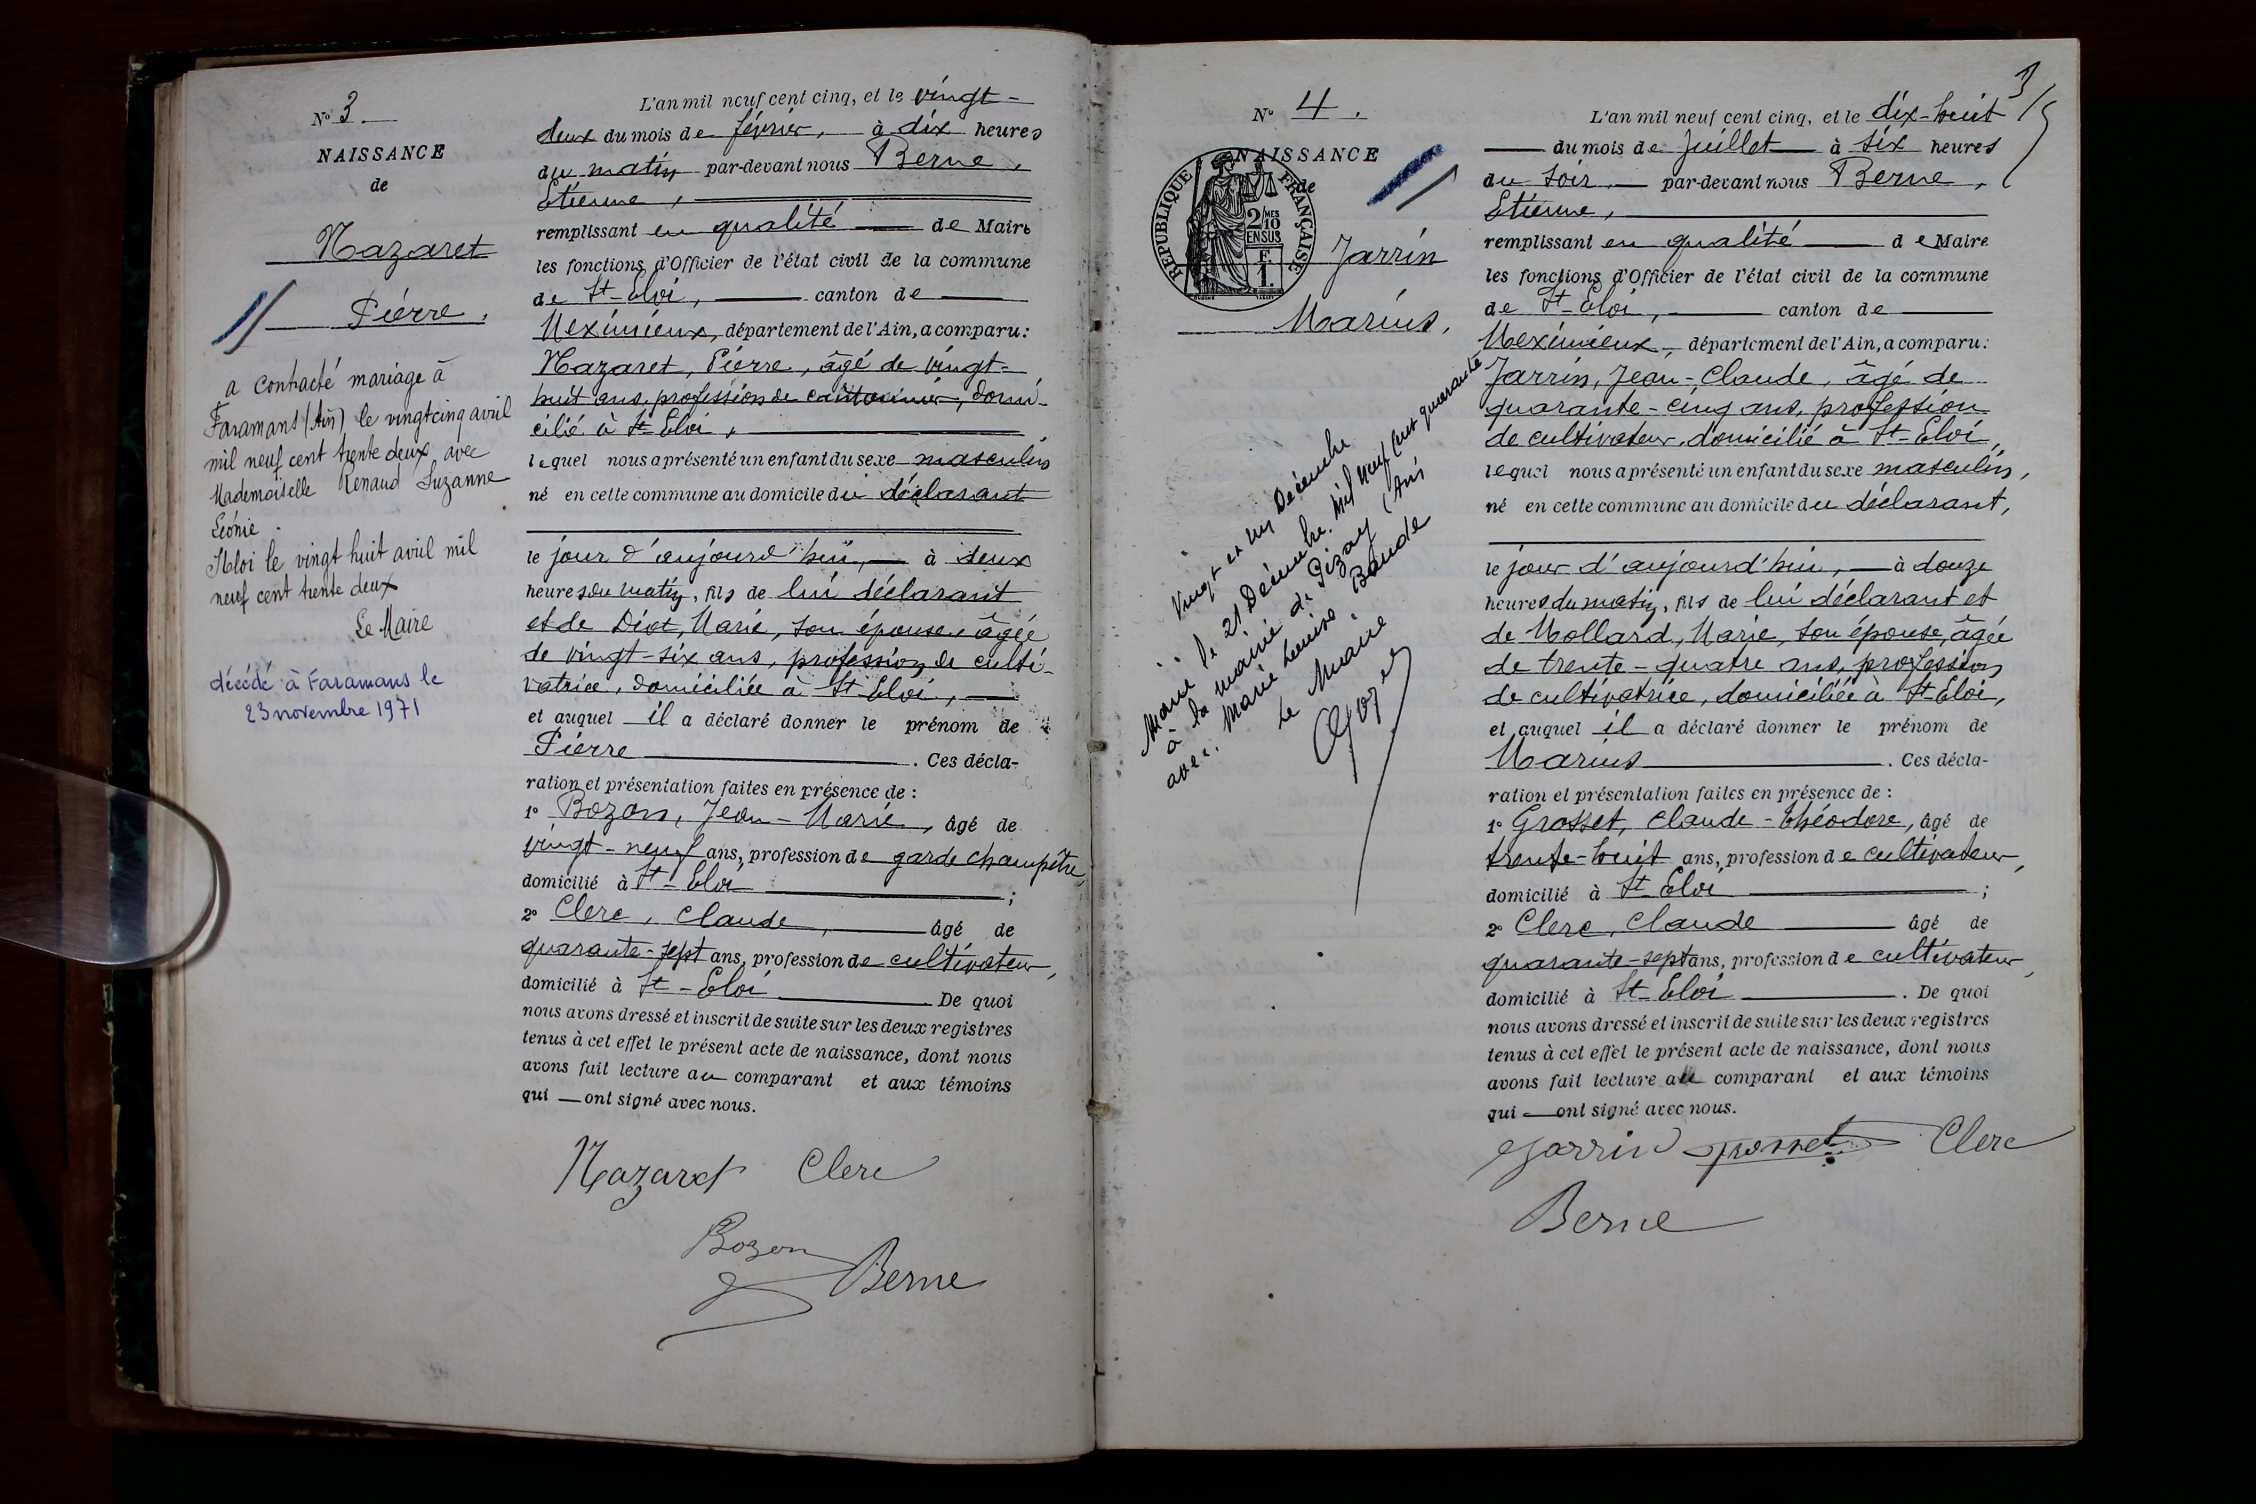 N° 3.
NAISSANCE
de
Nazaret
Pierre.
a contracté mariage à
Faramans (Ain) le vingt cinq avril
mil neuf cent trente deux avec
Mademoiselle Renaud Suzanne
Léonie.
St Eloi le vingt huit avril mil
neuf cent trente deux
Le Maire
décédé à Faramans le
23 novembre 1971
L'an mil neuf cent cinq, et le vingt-
deux du mois de février, à dix heures
du matin par-devant nous Berne,
Etienne,
remplissant en qualité de Maire
les fonctions d'Officier de l'état civil de la commune
de St-Eloi, canton de
Meximieux, département de l'Ain, a comparu:
Nazaret, Pierre, âgé de vingt-
huit ans, profession de cantonnier, domi-
cilié à St Eloi,
lequel nous a présenté un enfant du sexe masculin
né en cette commune au domicile du déclarant
le jour d'aujourd'hui, à deux
heures du matin, fils de lui déclarant
et de Divot, Marie, son épouse, âgée
de vingt-six ans, profession de culti-
vatrice, domiciliée à St Eloi,
et auquel il a déclaré donner le prénom de
Pierre. Ces décla-
ration et présentation faites en présence de:
1° Bozon, Jean-Marie, âgé de
vingt-neuf ans, profession de garde champêtre,
domicilié à St-Eloi;
2° Clerc, Claude, âgé de
quarante-sept ans, profession de cultivateur,
domicilié à St-Eloi De quoi
nous avons dressé et inscrit de suite sur les deux registres
tenus à cet effet le présent acte de naissance, dont nous
avons fait lecture au comparant et aux témoins
qui ont signé avec nous.
Nazaret Clerc
Bozon
Berne
N° 4.
NAISSANCE
de
REPUBLIQUE FRANÇAISE
2/10MES
EN SUS
F.
1.
Jarrin
Marius.
Vingt et un Décembre
Marié le 21 Décembre mil neuf cent quarante
à la mairie de Pizay (Ain
avec Marie Louise Baude
Le Maire
3
L'an mil neuf cent cinq, et le dix-huit
du mois de Juillet à six heures
du soir, par-devant nous Berne,
Etienne,
remplissant en qualité de Maire
les fonctions d'Officier de l'état civil de la commune
de St-Eloi, canton de
Meximieux, département de l'Ain, a comparu:
Jarrin, Jean-Claude, âgé de
quarante-cinq ans, profession
de cultivateur, domicilié à St-Eloi,
lequel nous a présenté un enfant du sexe masculin,
né en cette commune au domicile du déclarant,
le jour d'aujourd'hui, à douze
heures du matin, fils de lui déclarant et
de Mollard, Marie, son épouse, âgée
de trente-quatre ans, profession
de cultivatrice, domiciliée à St Eloi,
et auquel il a déclaré donner le prénom de
Marius. Ces décla-
ration et présentation faites en présence de:
1° Grosset, Claude-Théodore, âgé de
trente-huit ans, profession de cultivateur,
domicilié à St Eloi;
2° Clerc, Claude âgé de
quarante-sept ans, profession de cultivateur,
domicilié à St Eloi. De quoi
nous avons dressé et inscrit de suite sur les deux registres
tenus à cet effet le présent acte de naissance, dont nous
avons fait lecture au comparant et aux témoins
qui ont signé avec nous.
Jarrin Grosset Clerc
Berne